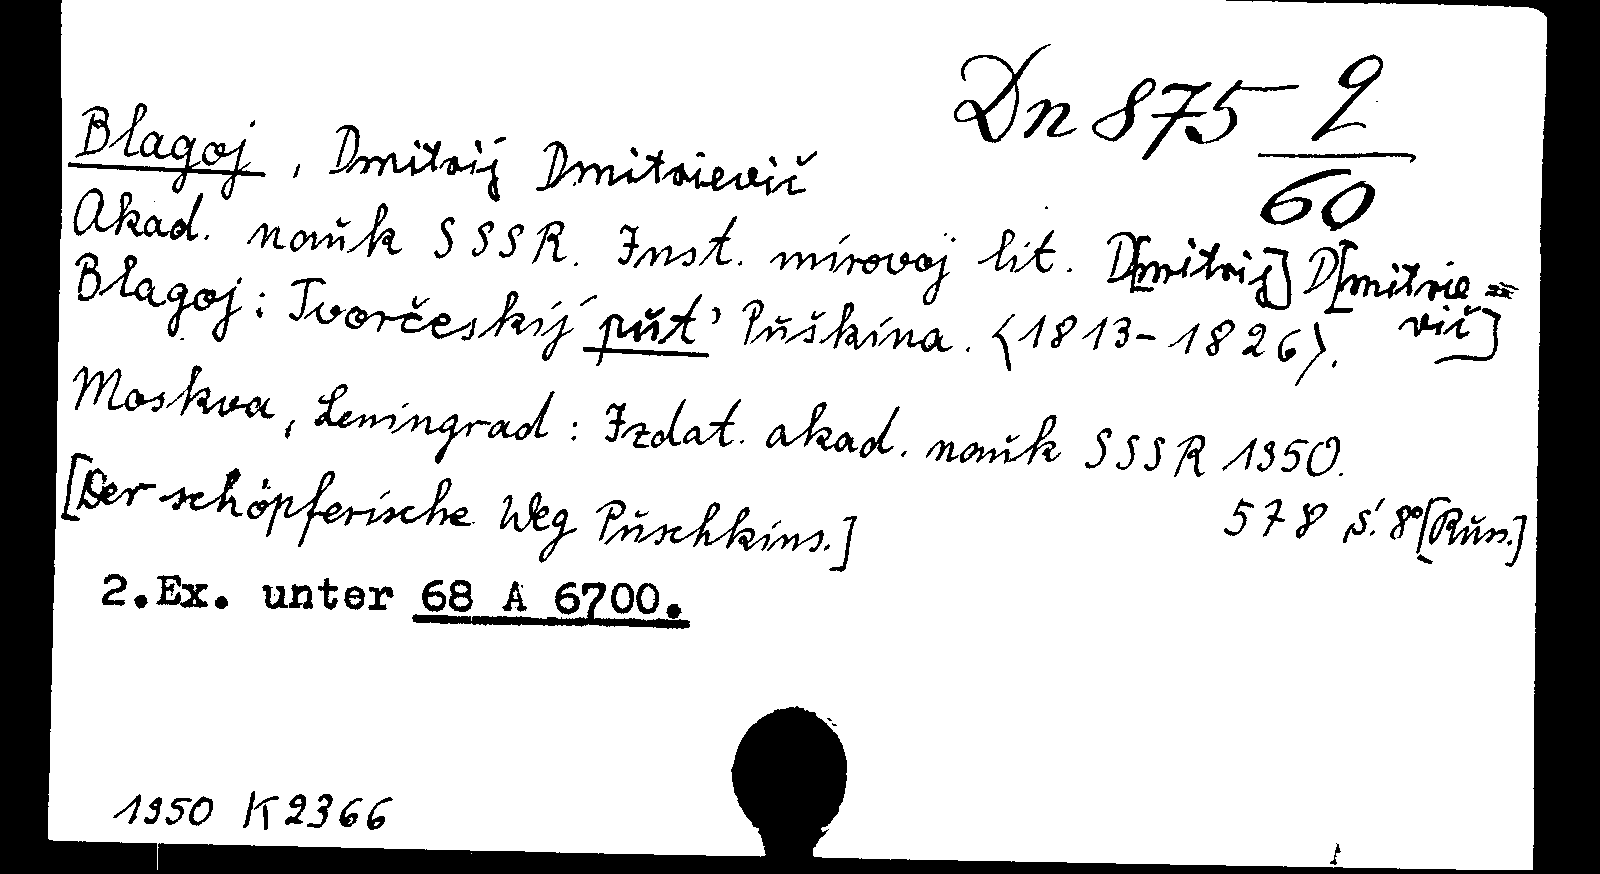 Dn 875 9/60
Blagoj, Dmitrij Dmitrievič
Akad. nauk SSSR. Inst. mirovoj lit. D[mitrij] D[mitrie=
vič]
Blagoj: Tvorčeskij put' Puškina. <1813-1826>.
Moskva, Leningrad: Izdat. akad. nauk SSSR 1950.
578 S. 8° [Russ.]
[Der schöpferische Weg Puschkins.]
2.Ex. unter 68 A 6700.
1950 K 2366